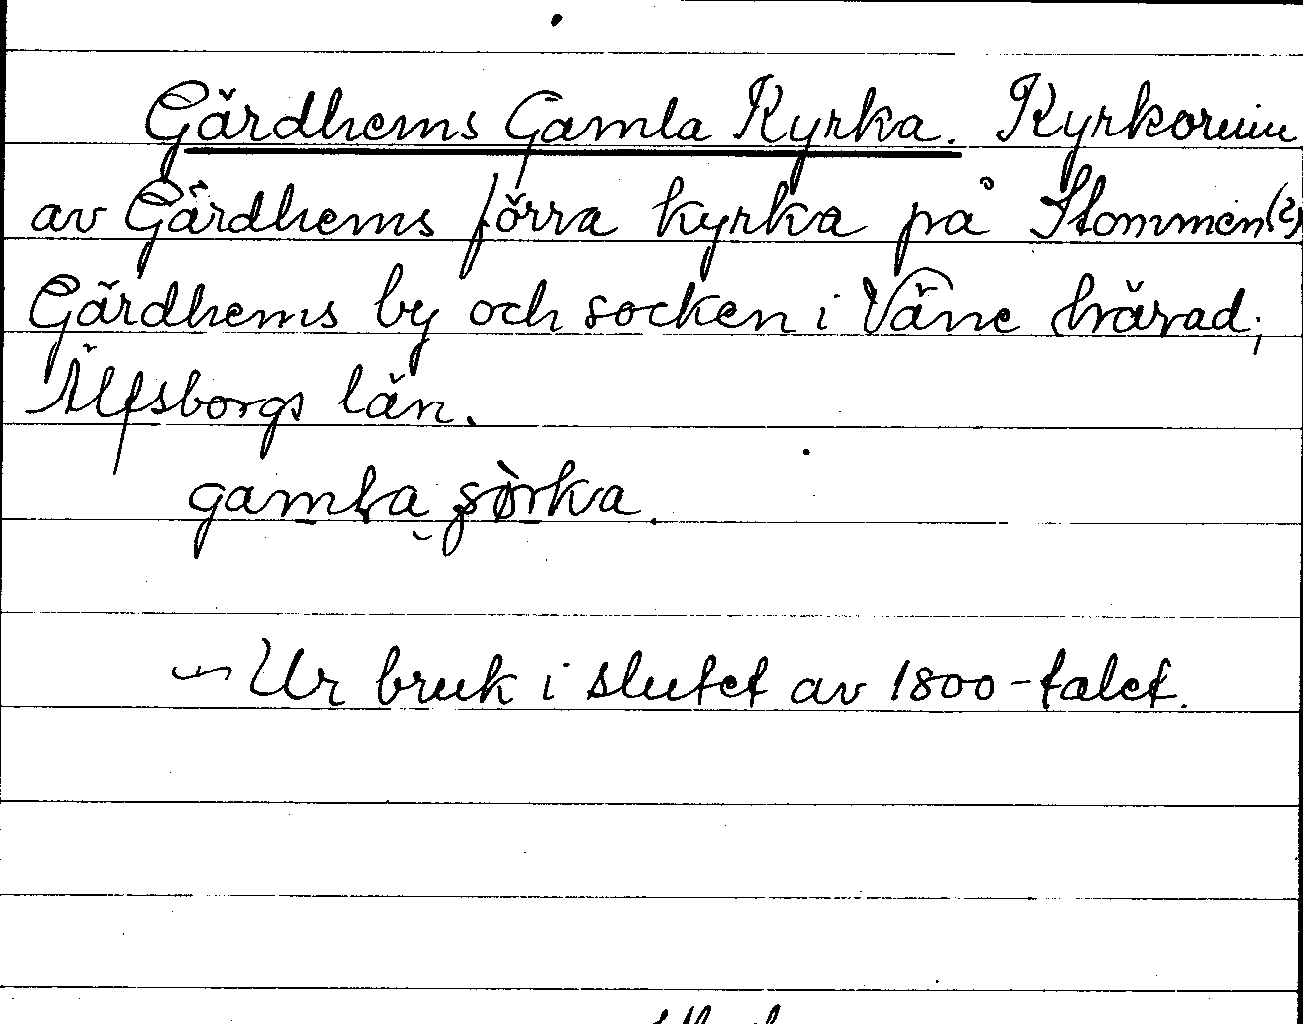 Gärdhems Gamla Kyrka. Kyrkoruin
av Gärdhems förra kyrka på Stommen(2)
Gärdhems by och socken i Väne härad;
Älfsborgs län.
gamla
Ur bruk i slutet av 1800-talet.